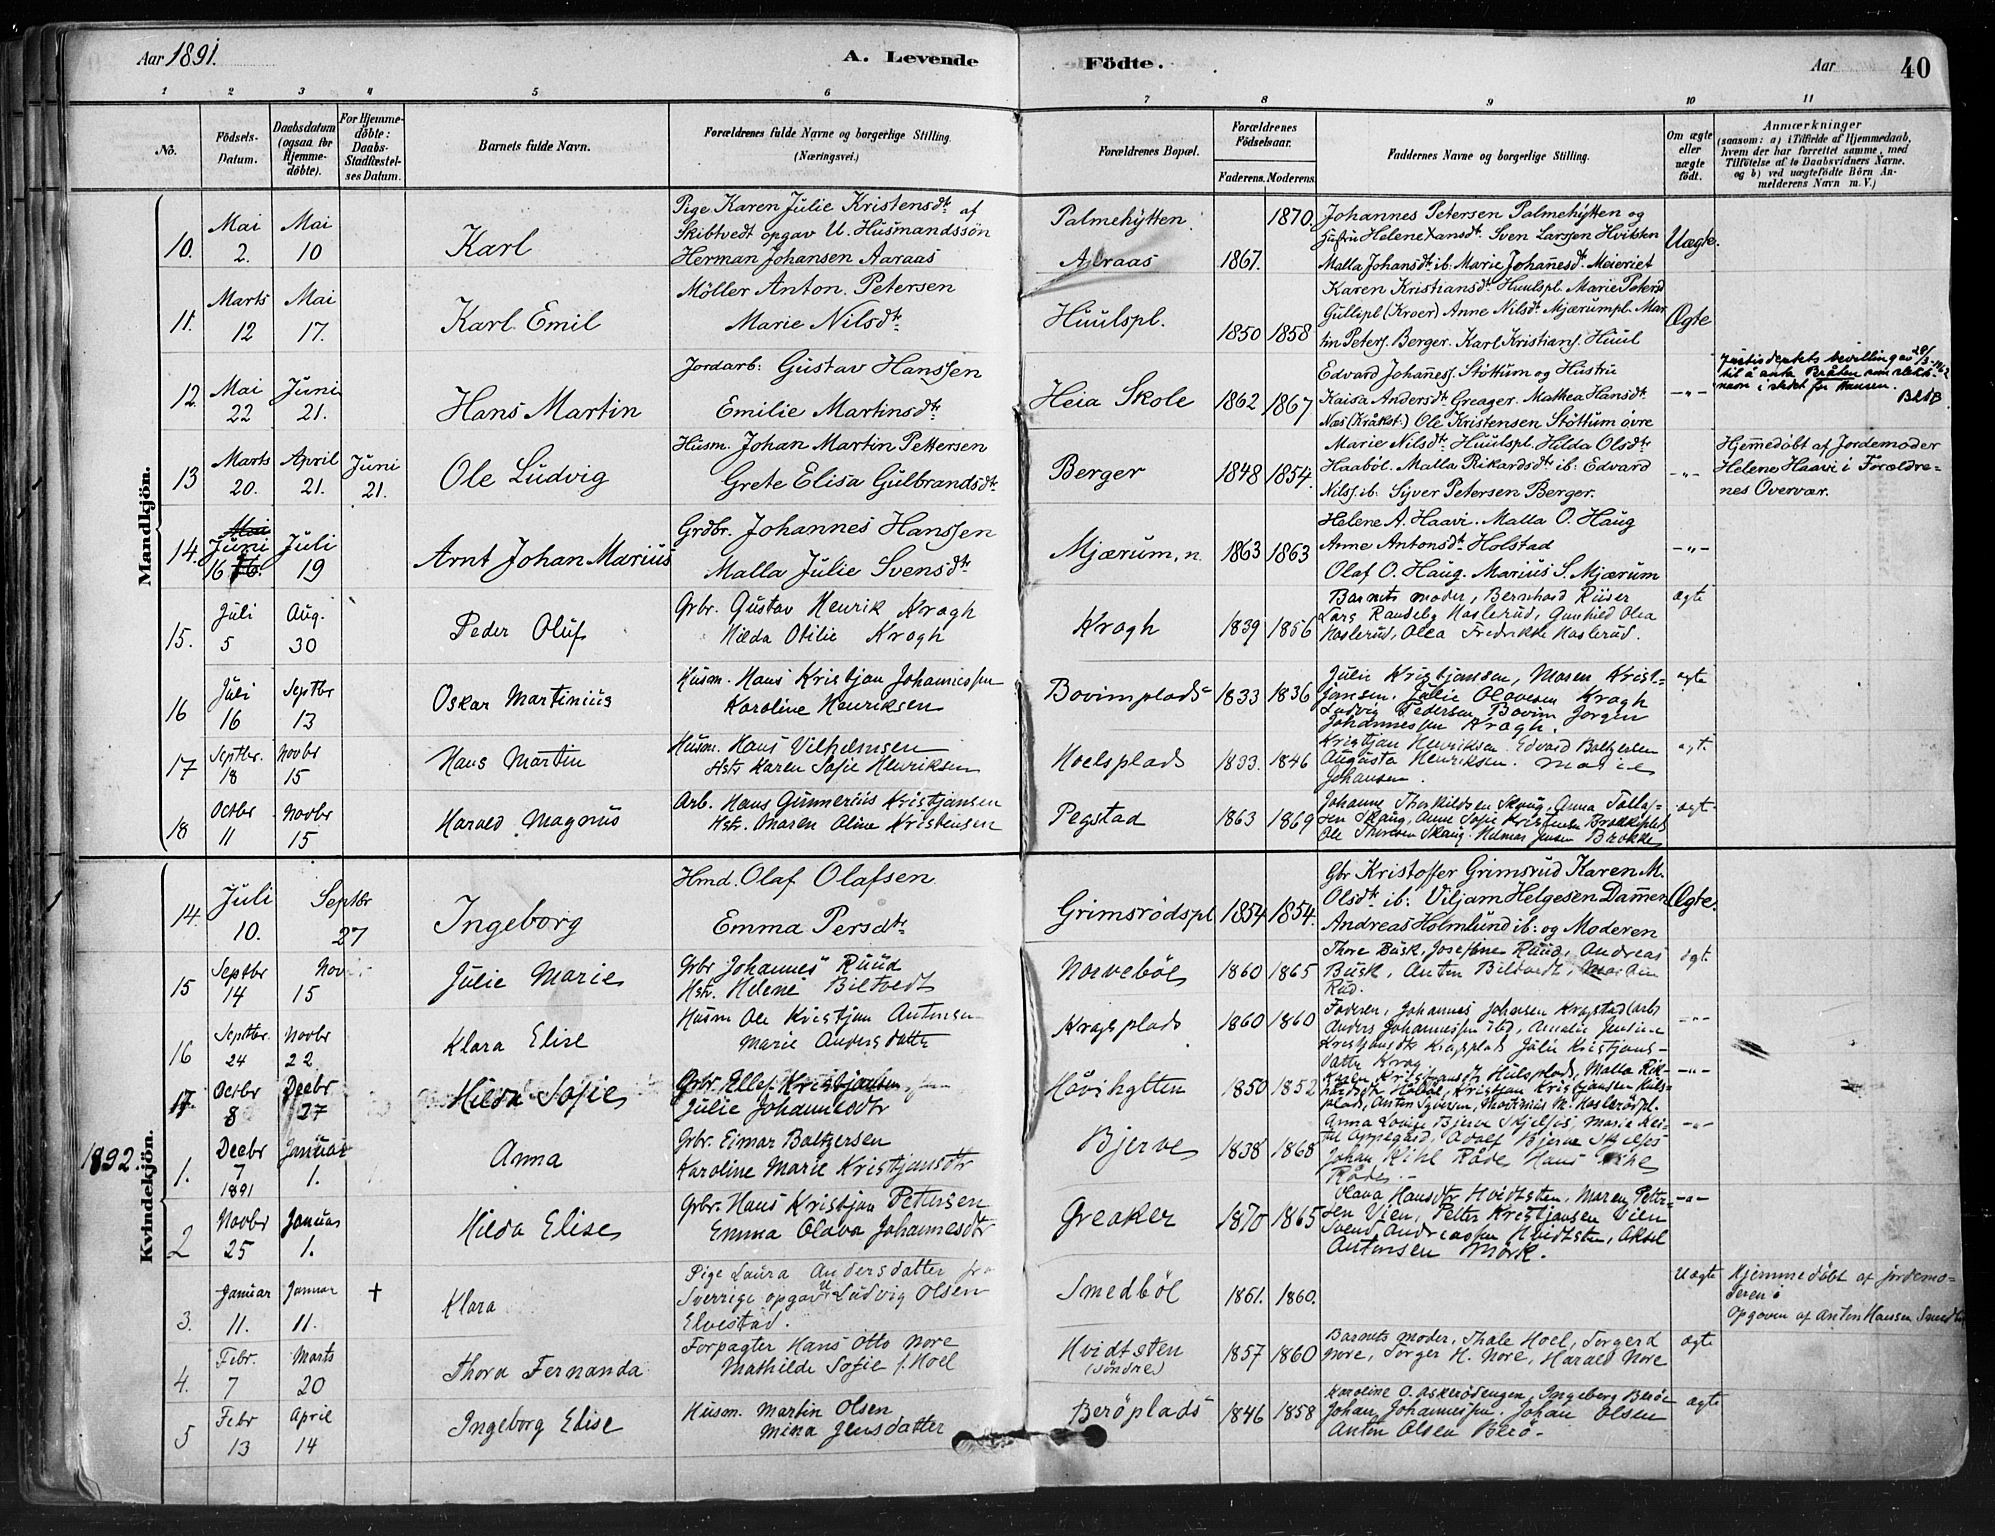 Aar 1891.
A. Levende Födte.
Aar 40
1 2 3 4 5 6 7 8 9 10 11
No.
Födsels-Datum.
Daabsdatum (ogsaa for Hjemme-döbte).
For Hjemme-döbte: Daabs-Stadfæstel-ses Datum.
Barnets fulde Navn.
Forældrenes fulde Navne og borgerlige Stilling.
(Næringsvei.)
Forældrenes Bopæl.
Forældrenes Födselsaar.
Faderens. Moderens.
Faddernes Navne og borgerlige Stilling.
Om ægte eller uægte födt.
Anmærkninger
(saasom: a) i Tilfælde af Hjemmedaab,
hvem der har forrettet samme, med
Tilföielse af to Daabsvidners Navne.
og b) ved uægtefödte Börn An-
melderens Navn m. V.)
Mandkjön.
10. Mai 2. Mai 10 Karl
Pige Karen Julie Kristensdtr af
Skibtvedt opgav U. Husmandssön
Herman Johansen Aaraas
Palmehytten. Aaraas 1867. 1870.
Johannes Petersen Palmehytten og
Hustru Helene Hansdtr. Sven Larssen Hvitsten
Malla Johansdtr. ib. Marie Johannesdtr. Meieriet
Uægte.
11. Marts 12 Mai 17. Karl Emil
Möller Anton Petersen
Marie Nilsdtr.
Huulspl. 1850 1858
Karen Kristiansdtr. Huulspl. Marie Petersd
Gullispl. (Kroer) Anne Nilsdtr. Mjærumpl. Mar
tin Peters. Berger. Karl Kristians. Huul
Ægte
12. Mai 22 Juni 21. Hans Martin
Jordarb: Gustav Hanssen
Emilie Martinsdtr.
Heia Skole 1862 1867
Edvard Johannes. Stöttum og Hustru
Kaisa Andersdtr. Greager. Mathea Hansdtr.
Næs (Kråkst.) Ole Kristensen Stöttum övre
-"-
Justisdeptets bevilling av
til å anta Bråten som slekts-
navn i stedet for Hansen.
13 Marts 20. April 21. Juni 21. Ole Ludvig
Husm. Johan Martin Pettersen
Grete Elisa Gulbrandsdtr.
Berger 1848 1854.
Marie Nilsdtr. Huulspl. Hilda Olsdtr
Haaböl. Malla Rikardsdtr. ib. Edvard
Nilss. ib. Syver Petersen Berger.
-"-
Hjemmedöbt af Jordemoder
Helene Haavi i Forældre-
nes Overvær.
14. Mai Juni 16 Juli 19 Arnt Johan Marius
Grdbr. Johannes Hanssen
Malla Julie Svensdtr.
Mjærum, n. 1863 1863
Helene A. Haavi. Malla O. Haug
Anne Antonsdtr. Holstad
Olaf O. Haug. Marius S. Mjærum
-"-
15. Juli 5 Aug. 30 Peder Oluf
Grbr. Gustav Henrik Kragh
Hilda Otilie Kragh
Kragh 1839 1856
Barnets moder, Bernhard Riiser
Lars Randeby Haslerud, Gunhild Olea
Haslerud, Olea Fredrikke Haslerud.
ægte
16 Juli 16 Septbr 13 Oskar Martinius
Husm. Hans Kristjan Johannessen
Karoline Henriksen
Bovimplads 1833 1836
Julie Kristjansen, Maren Krist-
jansen. Julie Olavesen Kragh
Ludvig Pedersen Bovim Jorgen
Johannessen Kragh.
ægte
17 Septbr. 18 Novbr 15 Hans Martin
Husm. Hans Vilhelmsen
Hstr Karen Sofie Henriksen
Hoelsplads 1833. 1846
Kristjan Henriksen. Edvard Baltzersen
Augusta Henriksen. Marie
Johansen.
ægt.
18 Octbr 11 Novbr 15 Harald Magnus
Arb. Hans Gunnerius Kristjansen
Hstr. Maren Oline Kristensen
Pegstad 1863 1869
Johanne Thorkildsen Skaug, Anna Tollef-
sen Skaug, Anne Sofie Kristensen Brækkeplads
Ole Thoresen Skaug. Helmer Jensen Brække
ægt
Kvindekjön.
14. Juli 10. Septbr 27 Ingeborg
Hmd. Olaf Olafsen
Emma Persdtr.
Grimsrödspl 1854 1854.
Gbr Kristoffer Grimsrud Karen M.
Olsdtr ib. Viljam Helgesen Dammen
Andreas Holmlund ib. og Moderen
Ægte.
15 Septbr 14 Nov 15 Julie Marie
Grbr Johannes Ruud
Hstr. Helene Biltvedt
Norveböl 1860 1865
Thore Busk, Josefine Ruud, Andreas
Busk, Anton Biltvedt, Martin
Rud.
ægt.
16 Septbr. 24 Novbr 22 Klara Elise
Husm Ole Kristjan Antonsen
Marie Andersdatter
Kragsplads 1860 1860
Faderen, Johannes Johnsen Kragstad (arb)
Anders Johannessen ibd, Amalie Jensine
Kristjansdtr Kragsplads Julie Kristjans-
datter Krag
-"-
17 Octbr 8 Decbr 27 Hilda Sofie
Grbr. Ellef Kristjansen
Julie Johannesdtr
Hövikhytten 1850 1852
Karen Kristjansdtr Hulsplads, Malla Rik-
hardsdtr Haböl, Kristjan Kristjansen Huls-
plads, Anton Syversen, Martinius M. Haslerödpl.
-"-
1892.
1. Decbr 7 1891 Januar 1. Anna
Grbr. Einar Baltzersen
Karoline Marie Kristjansdtr
Bjerve 1838 1868
Anna Lovise Bjerve Skjelfos, Marie
Oppegård, Adolf Bjerve Skjelfos
Johan Kihl Råde Hans Kihl
Råde.
-"-
2 Novbr 25 Januar 1. Hilda Elise
Grbr. Hans Kristjan Pettersen
Emma Olava Johannesdtr
Greaker 1870 1865
Olava Hansdtr Hvidtsten, Maren Petter-
sen Vien, Petter Kristjansen Vien
Svend Andreassen Hvidtsten, Aksel
Antonsen Mörk.
-"-
3. Januar 11. Januar 11. + Klara
Pige Laura Andersdatter fra
Sverrige opgav U Ludvig Olsen
Elvestad.
Smedböl 1861. 1860.
Uægte
Hjemmedöbt af jordemo-
deren i
opgaven af Anton Hansen Smedböl
4. Febr. 7 Marts 20 Thora Fernanda
Forpagter Hans Otto Nore
Mathilde Sofie f. Hoel
Hvidtsten (söndre) 1857 1860
Barnets moder, Thale Hoel, Torgerd
Nore, Torger H. Nore, Harald Nore
ægte
5 Febr 13 April 14 Ingeborg Elise
Husm. Martin Olsen
Mina Jensdatter
Beröplads 1846 1858
Karoline O. Askerödengen, Ingeborg Berö
Johan Johannessen. Johan Olsen
Anton Olsen Berö.
ægte